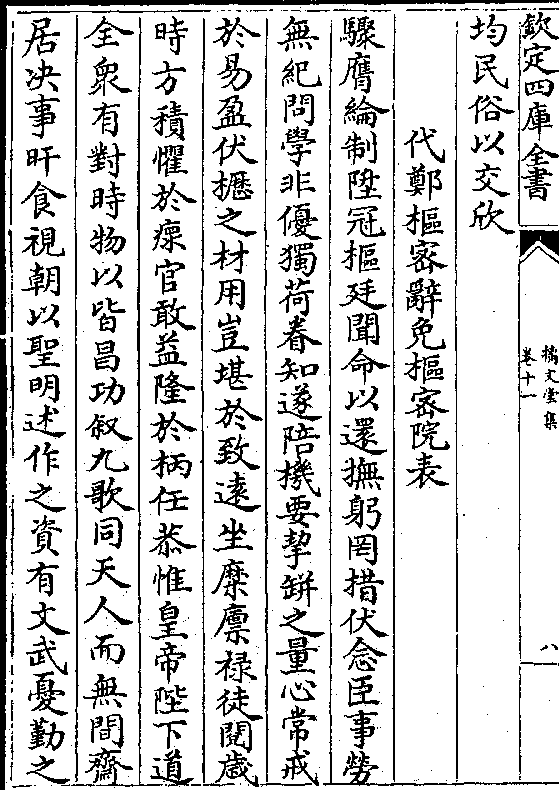 欽定四庫全書
摛文堂集
卷十一
八
均民俗以交欣
代鄭樞密辭免樞密院表
驟膺綸制陞冠樞廷聞命以還撫躬罔措伏念臣事勞
無紀問學非優獨荷眷知遂陪機要挈缾之量心常戒
於易盈伏櫪之材用豈堪於致遠坐糜廩禄徒閱歲
時方積懼於瘝官敢益隆於柄任恭惟皇帝陛下道
全衆有對時物以皆昌功叙九歌同天人而無間齋
居决事旰食視朝以聖明述作之資有文武憂勤之